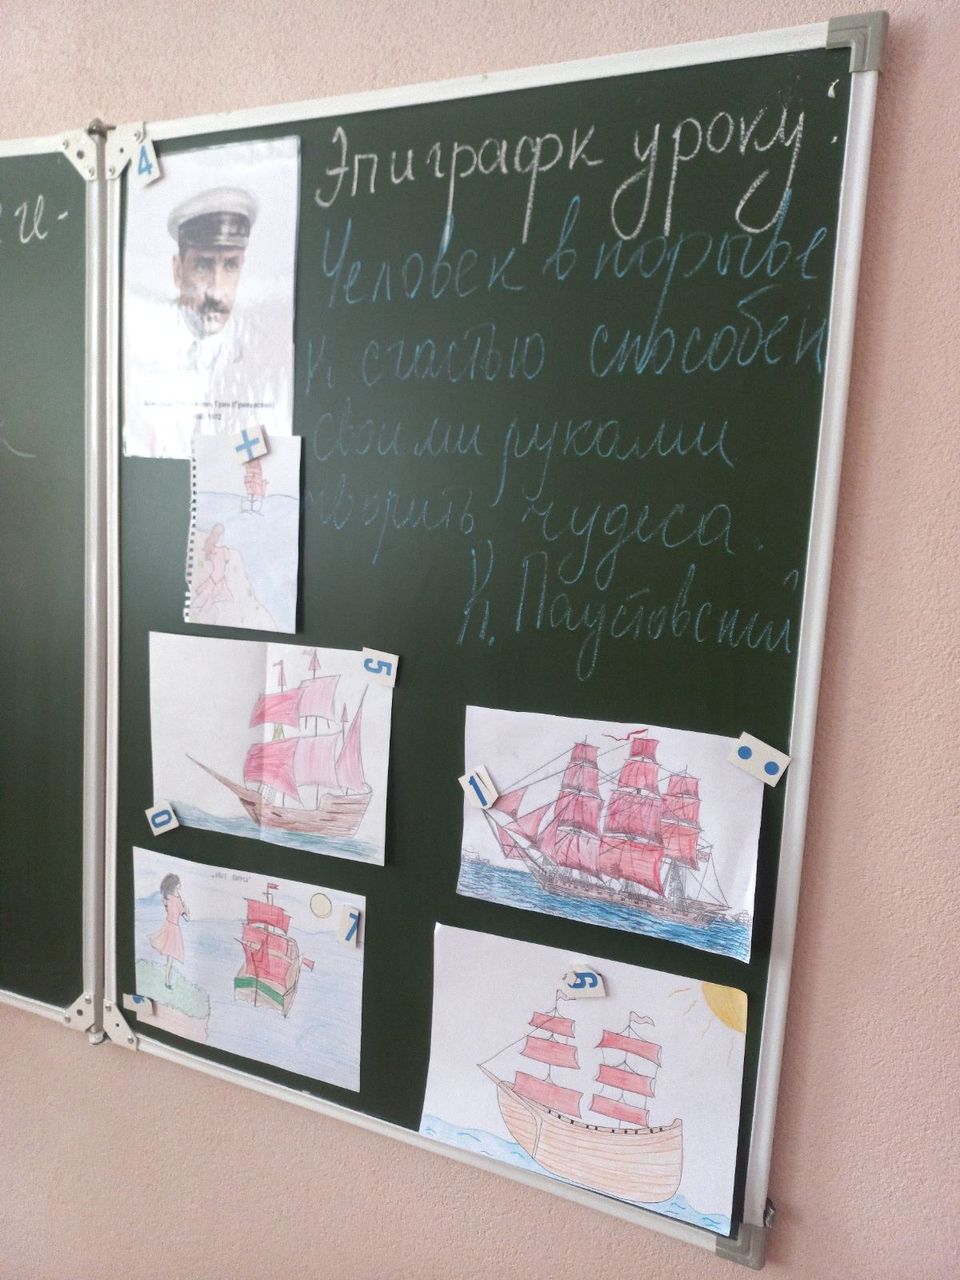 Эпиграф к уроку:
Человек в порыве
к счастью способен
своими руками
творить чудеса.
К. Паустовский
4
Грин (Гриневский)
+
5
0
1
7
6